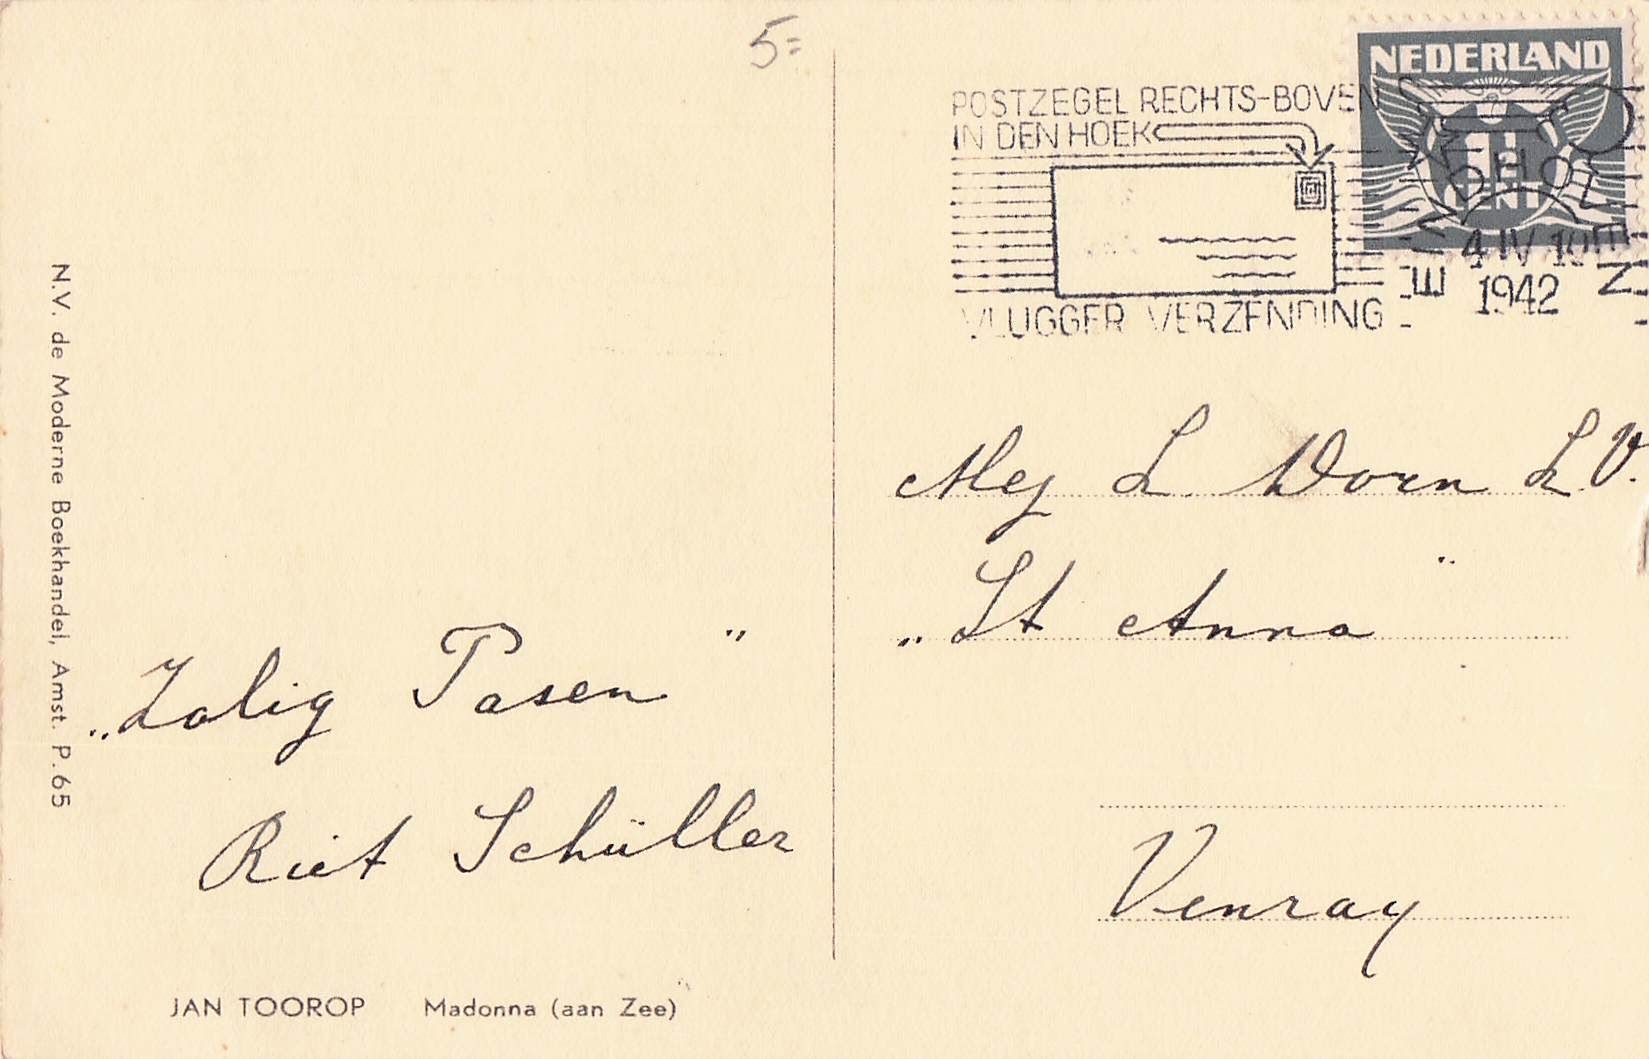 5=
POSTZEGEL RECHTS-BOVEN
IN DEN HOEK
VLUGGER VERZENDING
NEDERLAND
1½
CENT
4 IV 19
1942
EMMEN
Mej L. Dorn L.V.
„St Anna"
Venray
„Zalig Pasen"
Riet Schüller
JAN TOOROP Madonna (aan Zee)
N.V. de Moderne Boekhandel, Amst. P. 65